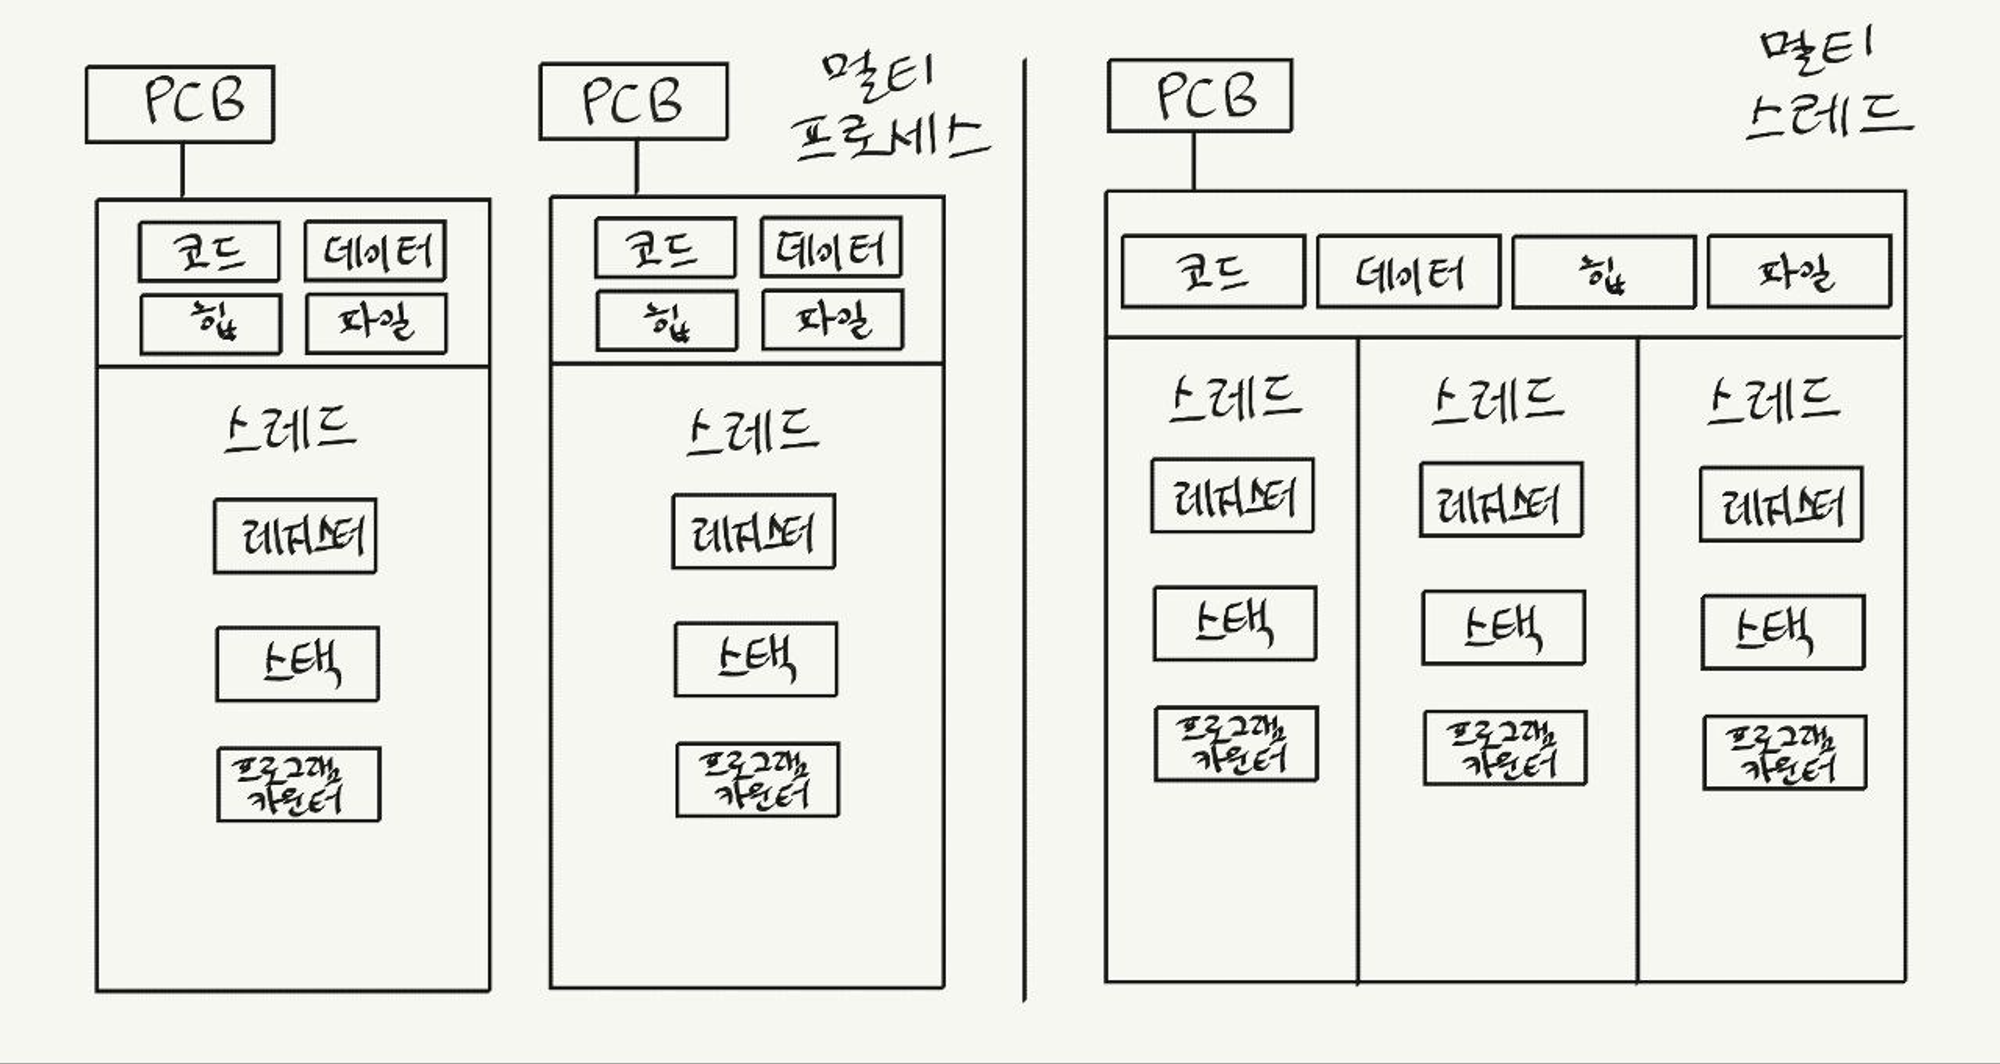 PCB
코드
데이터
힙
파일
스레드
레지스터
스택
프로그램
카운터
PCB
멀티
프로세스
코드
데이터
힙
파일
스레드
레지스터
스택
프로그램
카운터
PCB
멀티
스레드
코드
데이터
힙
파일
스레드
레지스터
스택
프로그램
카운터
스레드
레지스터
스택
프로그램
카운터
스레드
레지스터
스택
프로그램
카운터